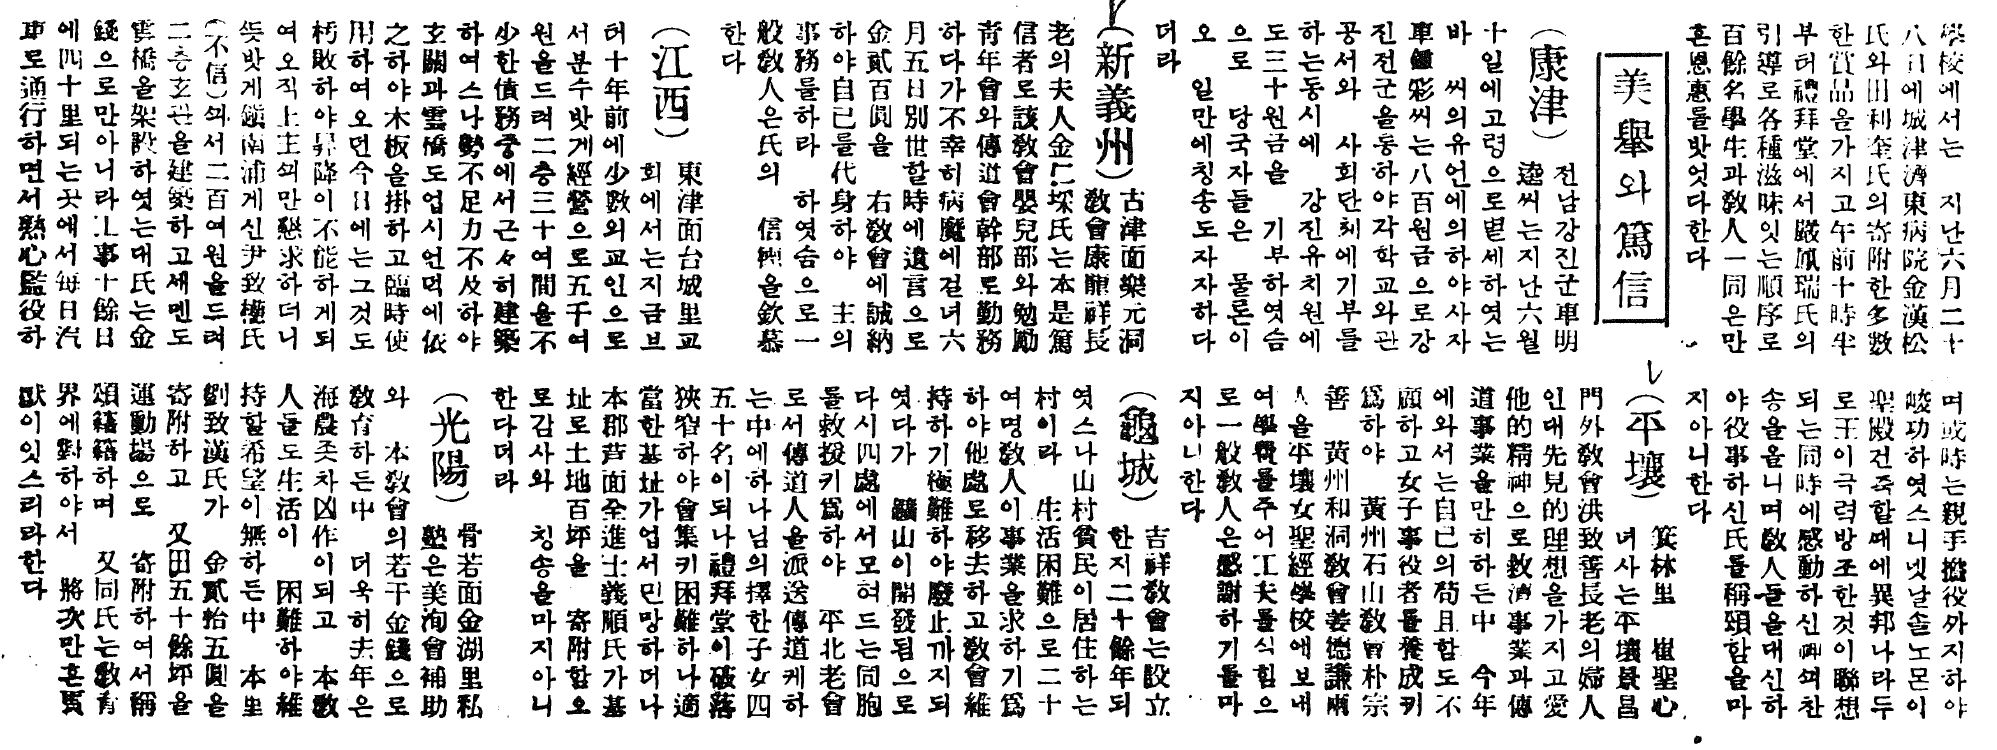 學校에서는 지난六月二十
八日에城津濟東病院金漢松
氏와田利奎氏의寄附한多數
한賞品을가지고午前十時半
부터禮拜堂에서嚴鳳瑞氏의
引導로各種滋味잇는順序로
百餘名學生과敎人一同은만
흔恩惠를밧엇다한다
美擧와篤信
(康津) 전남강진군車明
씨는지난六월
十일에고령으로별세하엿는
바 씨의유언에의하야사자
車鍾彩씨는八百원금으로강
진전군을통하야각학교와관
공서와 사회단체에기부를
하는동시에 강진유치원에
도三十원금을 기부하엿슴
으로 당국자들은 물론이
오 일만에칭송도자자하다
더라
(新義州) 古津面樂元洞
敎會康龍祥長
老의夫人金仁埰氏는本是篤
信者로該敎會嬰兒部와勉勵
靑年會와傳道會幹部로勤務
하다가不幸히病魔에걸녀六
月五日別世할時에遺言으로
金貳百圓을 右敎會에誠納
하야自己를代身하야 主의
事務를하라 하엿슴으로一
般敎人은氏의 信仰을欽慕
한다
(江西) 東津面台城里교
회에서는지금브
터十年前에少數의교인으로
서분수밧게經營으로五千여
원을드려二층三十여間을不
少한債務중에서근々히建築
하여스나勢不足力不及하야
玄關과雲橋도업시언덕에依
之하야木板을掛하고臨時使
用하여오던今日에는그것도
朽敗하야昇降이不能하게되
여오직上主만懇求하더니
뜻밧게鎭南浦게신尹致權氏
(不信)서二百여원을드려
二층玄관을建築하고세멘도
雲橋을架設하엿는대氏는金
錢으로만아니라工事十餘日
에四十里되는곳에서每日汽
車로通行하면서熱心監役하
며或時는親手擔役外지하야
峻功하엿스니녯날솔노몬이
聖殿건축할때에異邦나라두
로王이극력방조한것이聯想
되는同時에感動하신神찬
송을올니며敎人들을대신하
야役事하신氏를稱頌함을마
지아니한다
(平壤) 箕林里 崔聖心
녀사는平壤景昌
門外敎會洪致善長老의婦人
인대先見的理想을가지고愛
他的精神으로救濟事業과傳
道事業을만히하든中 今年
에와서는自己의苟且함도不
顧하고女子事役者를養成키
爲하야 黃州石山敎會朴宗
善 黃州和洞敎會姜德謙兩
人을平壤女聖經學校에보내
여學費를주어工夫를식힘으
로一般敎人은感謝하기를마
지아니한다
(龜城) 吉祥敎會는設立
한지二十餘年되
엿스나山村貧民이居住하는
村이라 生活困難으로二十
여명敎人이事業을求하기爲
하야他處로移去하고敎會維
持하기極難하야廢止까지되
엿다가 鑛山이開發됨으로
다시四處에서모혀드는同胞
를救援키爲하야 平北老會
로서傳道人을派送傳道케하
는中에하나님의擇한子女四
五十名이되나禮拜堂이破落
狹窄하야會集키困難하나適
當한基址가업서민망하더니
本郡芦面全進士義順氏가基
址로土地百坪을 寄附함으
로감사와 칭송을마지아니
한다더라
(光陽) 骨若面金湖里私
塾은美洵會補助
와 本敎會의若干金錢으로
敎育하든中 더욱히去年은
海農兆차凶作이되고 本敎
人들도生活이 困難하야維
持할希望이無하든中 本里
劉致漢氏가 金貳拾五圓을
寄附하고 又田五十餘坪을
運動場으로 寄附하여서稱
頌藉藉하며 又同氏는敎育
界에對하야서 將次만흔貢
獻이잇스리라한다